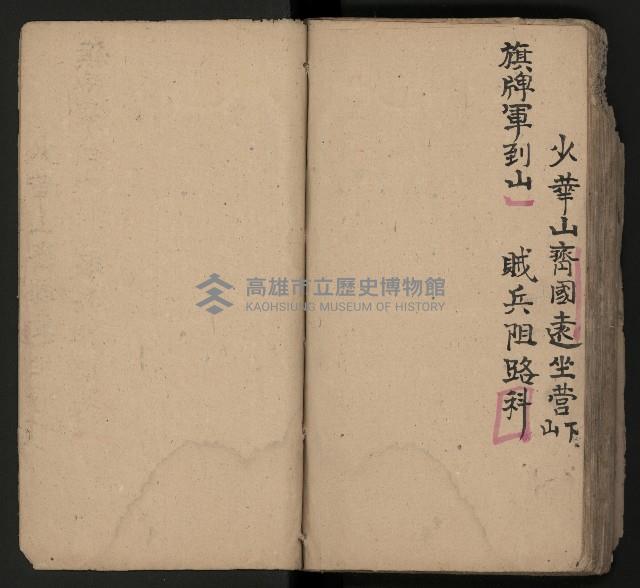 少華山齊國遠坐营下山
旗牌軍到山　賊兵阻路科
高雄市立歷史博物館
KAOHSIUNG MUSEUM OF HISTORY